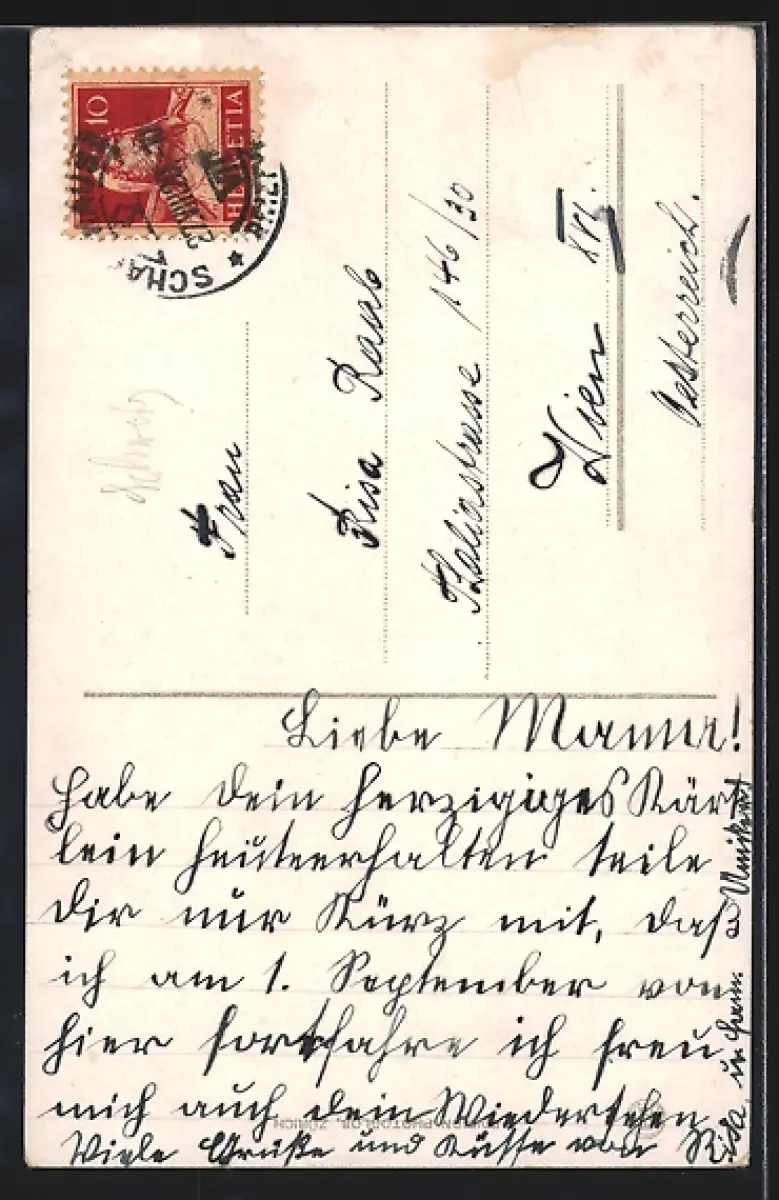 10
HELVETIA
SCHA
Schweiz
Frau
Risa Raab
Thaliastrasse 146/30
Wien XVI.
Oesterreich.
Liebe Mamma!
habe dein herzigiges Kärt
lein heute erhalten teile
dir nur Kurz mit, daß
ich am 1. September von
hier fortfahre ich freu
mich auch dein Wiedersehen
Viele Grüße und Küsse von Risa
u. Fam.